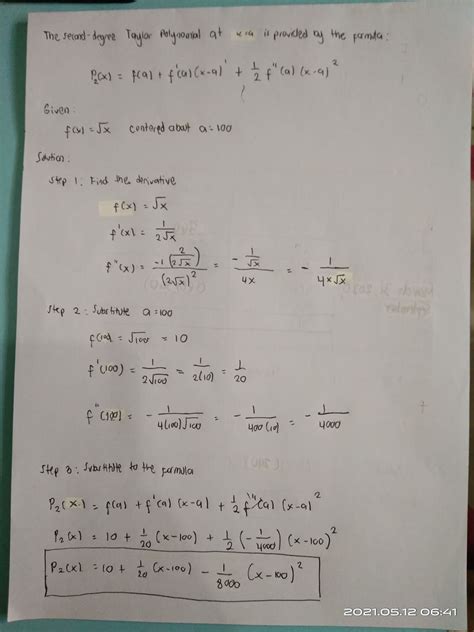 The second-degree Taylor Polynomial at x=a is provided by the formula:
P₂(x) = f(a) + f'(a) (x-a)' + 1/2 f''(a) (x-a)²
Given:
f(x) = √x centered about a=100
Solution:
Step 1: Find the derivative
f(x) = √x
f'(x) = 1/(2√x)
f''(x) = -1(2/(2√x))/(2√x)² = -(1/√x)/(4x) = - 1/(4x√x)
Step 2: Substitute a=100
f(100) = √100 = 10
f'(100) = 1/(2√100) = 1/(2(10)) = 1/20
f''(100) = - 1/(4(100)√100) = - 1/(400(10)) = - 1/4000
Step 3: Substitute to the formula
P₂(x) = f(a) + f'(a) (x-a) + 1/2 f''(a) (x-a)²
P₂(x) = 10 + 1/20 (x-100) + 1/2 (-1/4000) (x-100)²
P₂(x) = 10 + 1/20 (x-100) - 1/8000 (x-100)²
2021.05.12 06:41